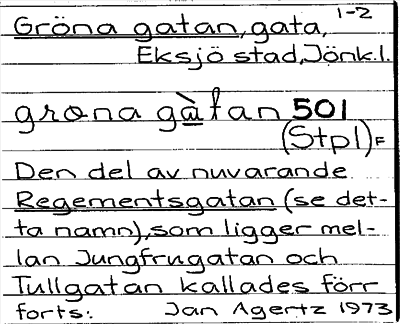 1-2
Gröna gatan, gata,
Eksjö stad, Jönk.l.
grøna gàtan 501
(Stpl)F
Den del av nuvarande
Regementsgatan (se det-
ta namn), som ligger mel-
lan Jungfrugatan och
Tullgatan kallades förr
forts. Jan Agertz 1973